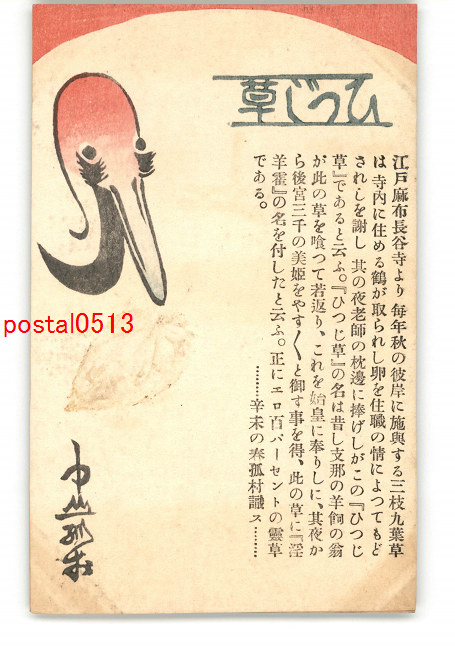 ひつじ草
江戸麻布長谷寺より 毎年秋の彼岸に施與する三枝九葉草
は 寺内に住める鶴が取られし卵を住職の情によつてもど
されしを謝し 其の夜老師の枕邊に捧げしがこの『ひつじ
草』であると云ふ。『ひつじ草』の名は昔し支那の羊飼の翁
が此の草を喰つて若返り、これを始皇に奉りしに、其夜か
ら後宮三千の美姫をやす〱と御す事を得、此の草に『淫
羊霍』の名を付したと云ふ。正にエロ百パーセントの靈草
である。
………辛未の春孤村識ス………
postal0513